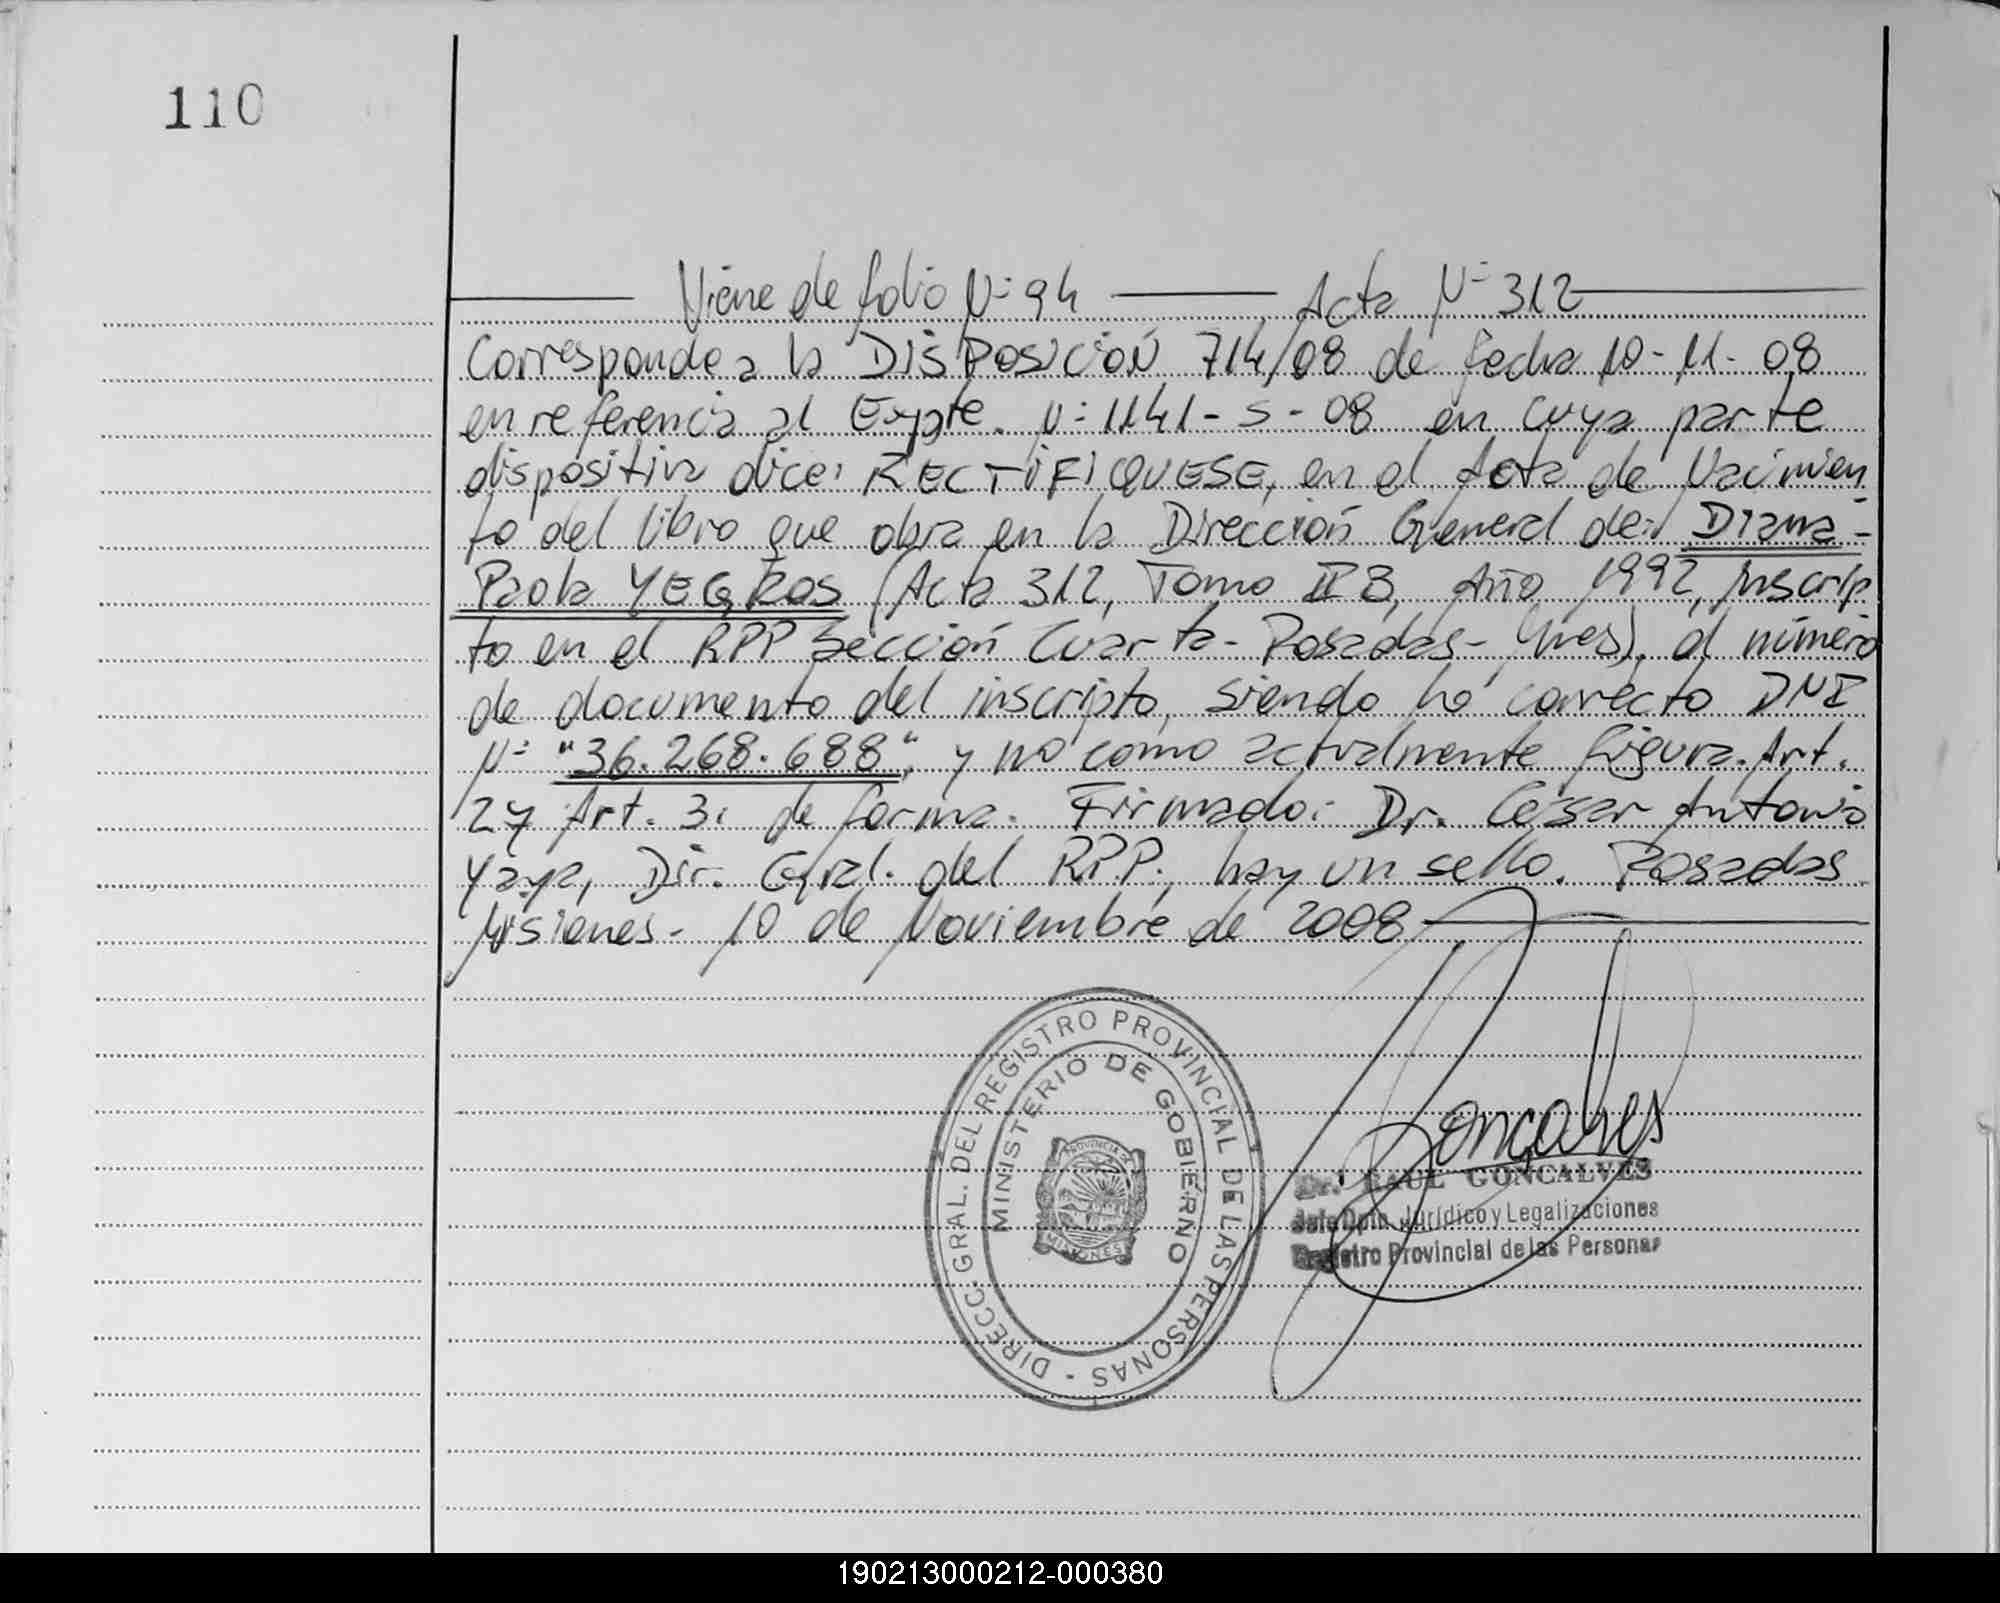 110
Viene de folio Nº 94 Acta Nº 312
Corresponde a la DISPOSICIÓN 714/08 de fecha 10-11-08
en referencia al Expte. Nº 1141-S-08 en cuya parte
dispositiva dice: RECTIFIQUESE, en el Acta de Nacimien
to del libro que obra en la Dirección General de: Diana
Paola YEGROS (Acta 312, Tomo II B, Año 1992, Inscrip
to en el RPP Sección Cuarta-Posadas-Mnes), el número
de documento del inscripto, siendo lo correcto DNI
Nº "36.268.688", y no como actualmente figura. Art.
2 y Art. 3: de forma. Firmado: Dr. César Antonio
Yaya, Dir. Gral. del RPP., hay un sello. Posadas
Misiones - 10 de Noviembre de 2008
DIRECC. GRAL. DEL REGISTRO PROVINCIAL DE LAS PERSONAS -
MINISTERIO DE GOBIERNO
PROVINCIA DE
MISIONES
Goncalves
Dr. RAUL GONCALVES
Jefe Dpto. Jurídico y Legalizaciones
Registro Provincial de las Personas
190213000212-000380